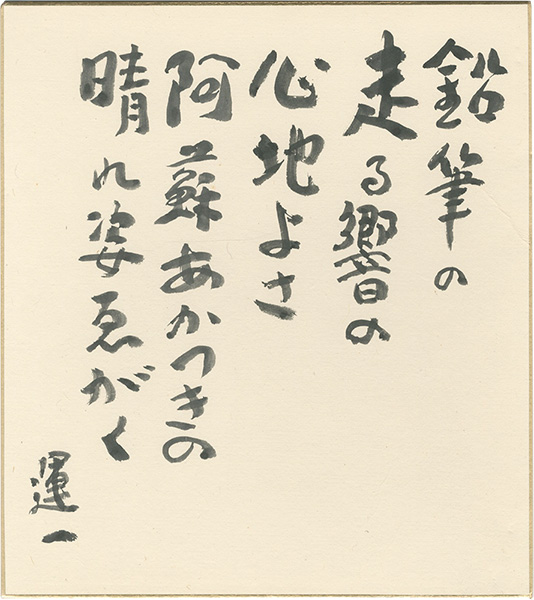 鉛筆の
走る響の
心地よさ
阿蘇あかつきの
晴れ姿ゑがく
運一